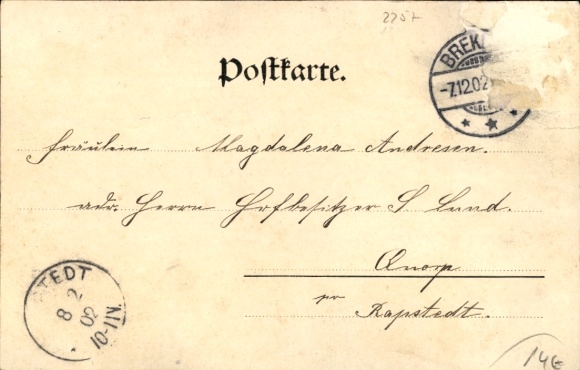 2257
Postkarte.
BREK
-7.12.02
Fräulein Magdalena Andresen.
adr. Herrn Hofbesitzer S. Lund.
Quorp
pr
Rapstedt.
STEDT
8 2
02
10-11N.
14€